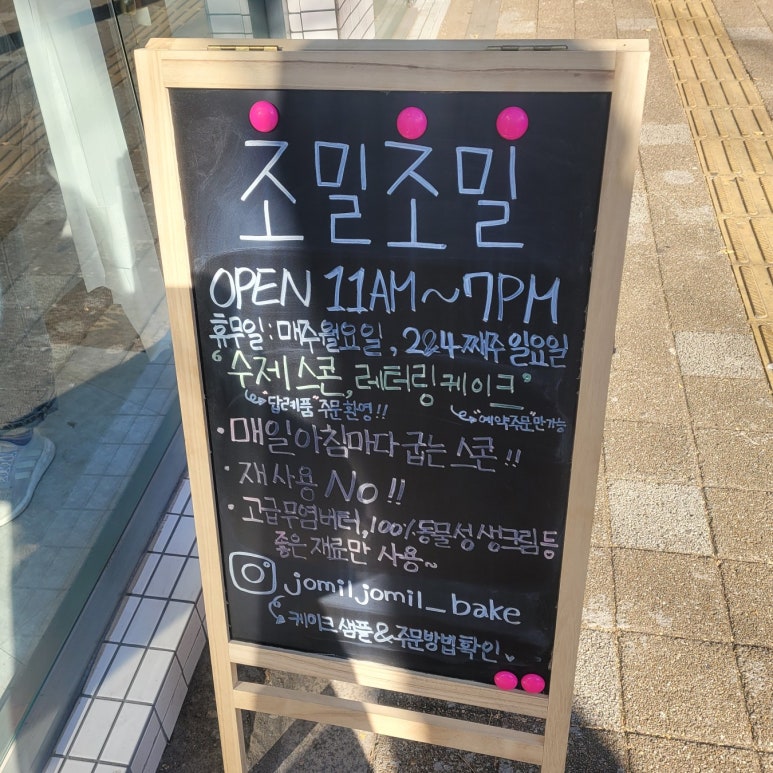 조밀조밀
OPEN 11AM~7PM
휴무일: 매주월요일, 2&4째주 일요일
"수제스콘, 레터링케이크"
"답례품" 주문환영!!
"예약주문"만가능
• 매일아침마다 굽는 스콘!!
• 재사용 No!!
• 고급무염버터, 100% 동물성생크림등
좋은재료만 사용~
jomiljomil_bake
케이크 샘플&주문방법확인